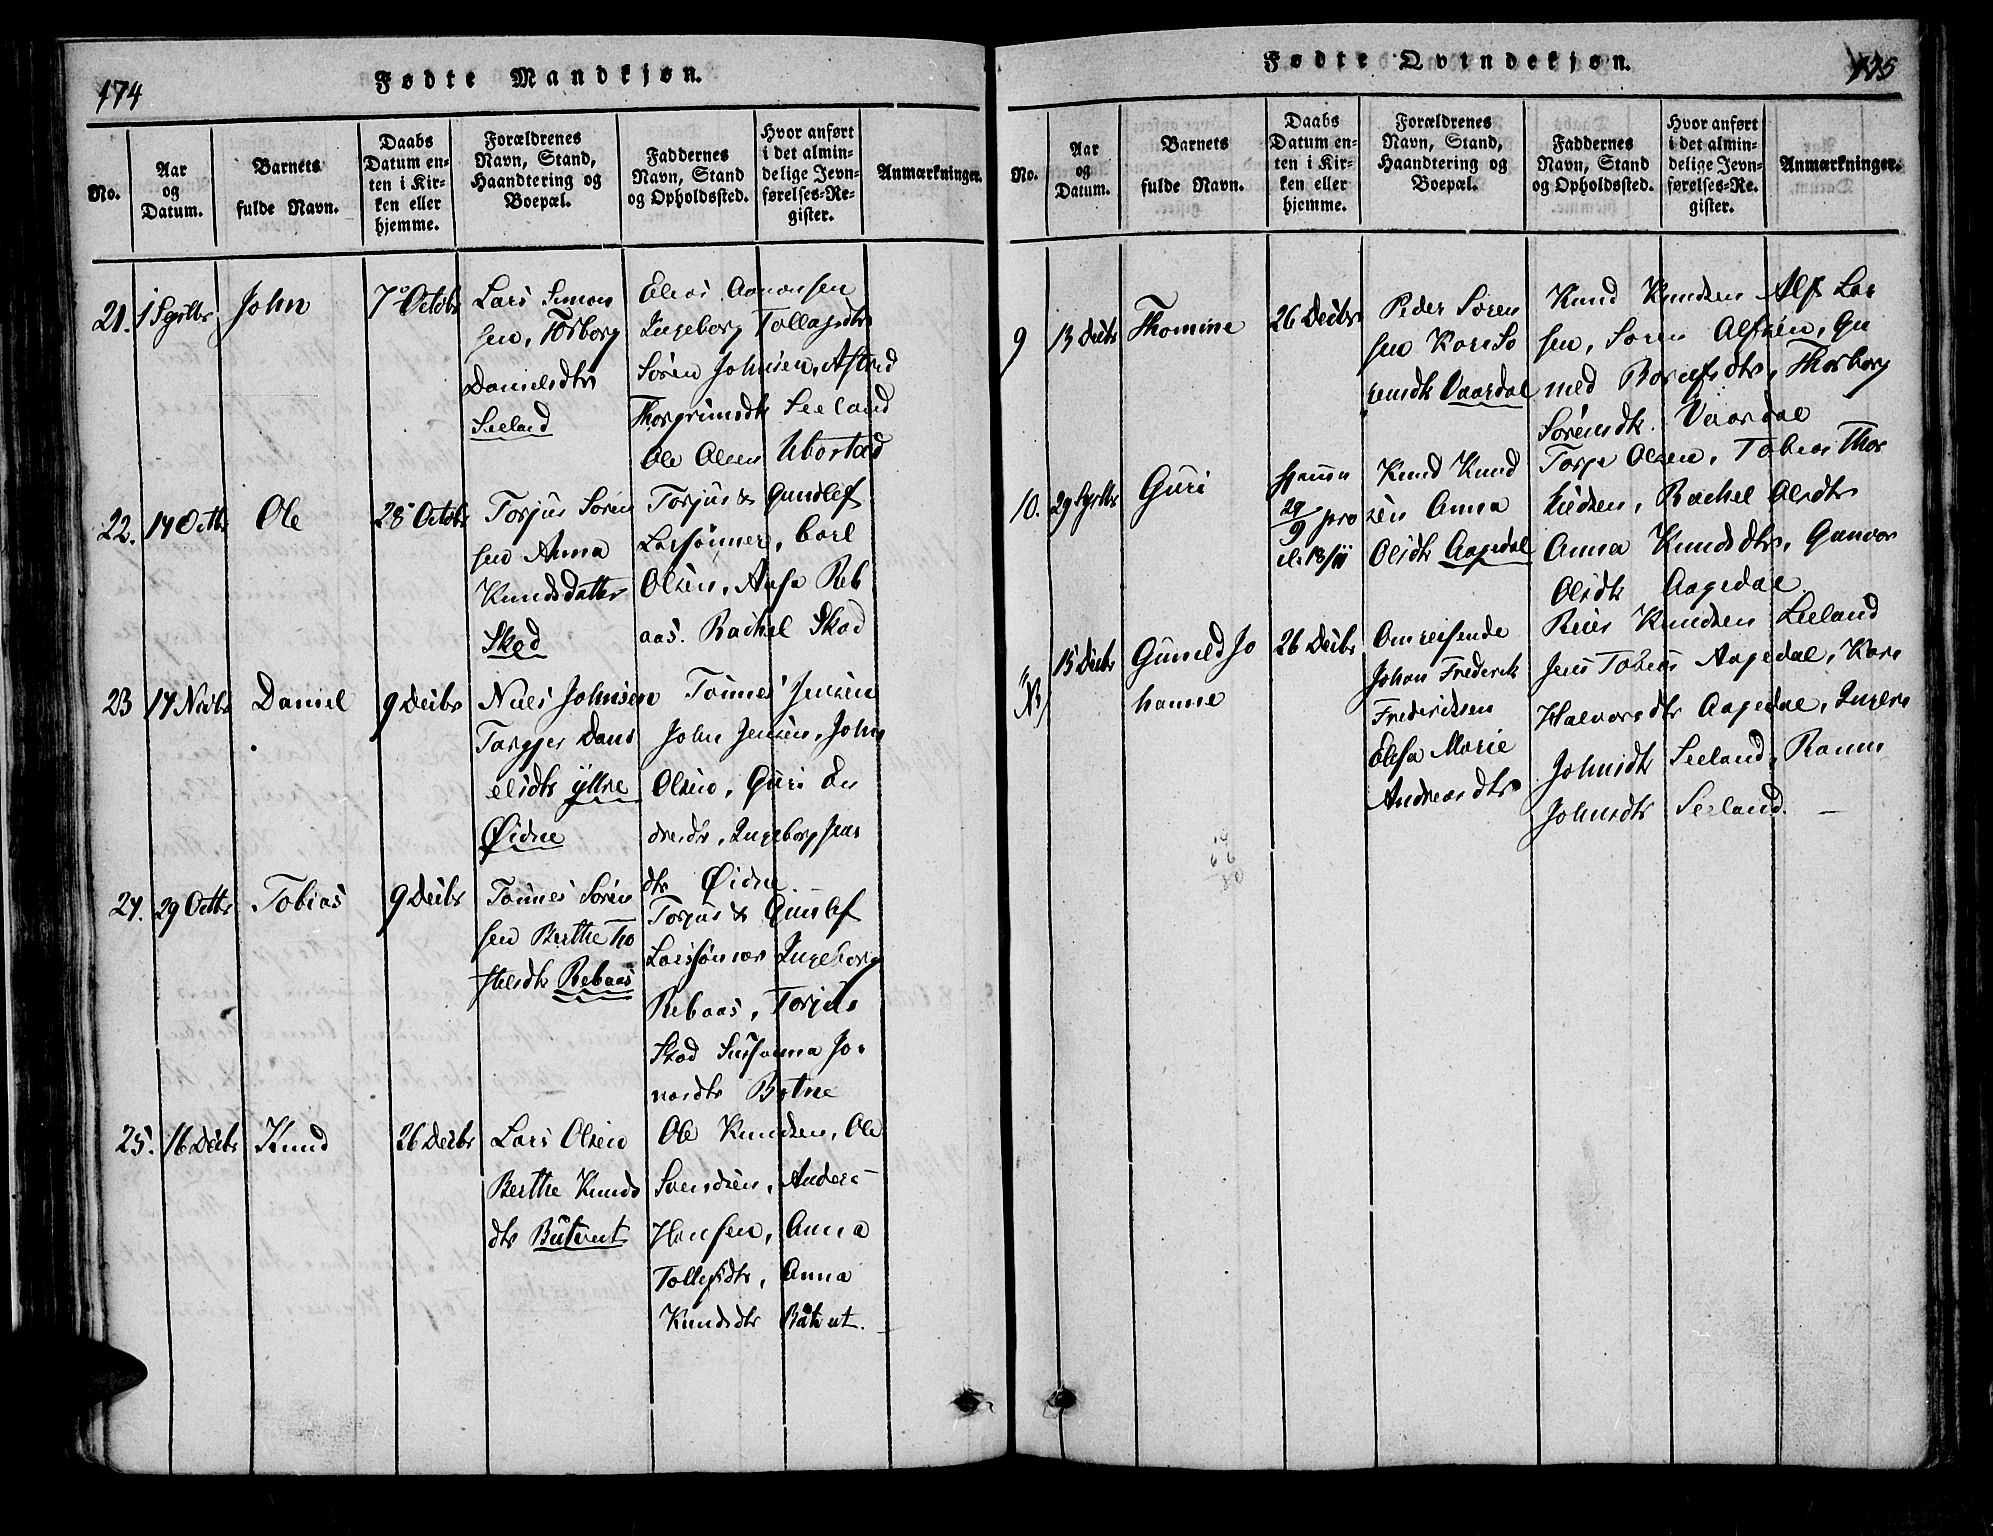 174
Fødte Mandkjøn.
No.
Aar
og
Datum.
Barnets
fulde Navn.
Daabs
Datum en-
ten i Kir-
ken eller
hjemme.
Forældrenes
Navn, Stand,
Haandtering og
Boepæl.
Faddernes
Navn, Stand
og Opholdssted.
Hvor anført
i det almin-
delige Jevn-
førelses-Re-
gister.
Anmærkninger.
21.
John
7 Octobr
Lars Simon
sen, Torborg
Danielsdtr
Seeland
Elias Aanonsen
Ingeborg Tollagsdtr
Søren Johnsen, Astrid
Thorgrimsdtr Seeland
Ole Olsen Ubostad
22.
17 Octbr
Ole
28 Octobr
Torjus Søren
sen Anna
Knudsdatter
Skod
Torjus & Gundlef
Larssønner, Carl
Olsen, Aasa Reb
aas. Rachel Skod
23
17 Novbr
Daniel
9 Decbr
Niels Johnsen
Targjer Dani
elsdtr Yttre
Øidne
Tønnes Jensen
John Jensen, John
Olsen, Guri En
dresdtr, Ingeborg Jens
dtr Øidne
24.
29 Octbr
Tobias
9 Decbr
Tønnes Søren
sen Berthe To
stensdtr Rebaas
Torjus & Gunlef
Larssønner Ingeborg
Rebaas, Torjus
Skod Susanna Jo
narsdtr Botne
25.
16 Decbr
Knud
26 Decbr
Lars Olsen
Berthe Knuds
dtr
Ole Knudsen, Ole
Svendsen, Anders
Hansen, Anna
Tollefsdtr, Anna
Knudsdtr
Fødte Qvindekjøn.
175
No.
Aar
og
Datum.
Barnets
fulde Navn.
Daabs
Datum en-
ten i Kir-
ken eller
hjemme.
Forældrenes
Navn, Stand,
Haandtering og
Boepæl.
Faddernes
Navn, Stand
og Opholdssted.
Hvor anført
i det almin-
delige Jevn-
førelses-Re-
gister.
Anmærkninger.
9
13 Decbr
Thomine
26 Decbr
Peder Søren
sen Kari Sø
rensdtr Vaardal
Knud Knudsen Alf Lar
sen, Søren Alfsen, Gu
ned Thorborg
Sørensdtr. Vaardal
10.
Guri
hjemme
29/9 pro
Knud Knud
sen Anna
Olsdtr Aagedal
Torje Olsen, Tobias Thor
kildsen, Rachel Olsdtr
Anna Knudsdtr, Gunvor
Olsdtr Aagedal
15 Decbr
Guneld Jo
hanne
26 Decbr
Omreisende
Johan Frederik
Frederiksen
Elisa Marie
Andreasdtr
Reier Knudsen Seeland
Jens Tobias Aagedal, Kari
Halvorsdtr Aagedal, Inger
Johnsdtr Seeland, Ranni
Johnsdtr Seeland.